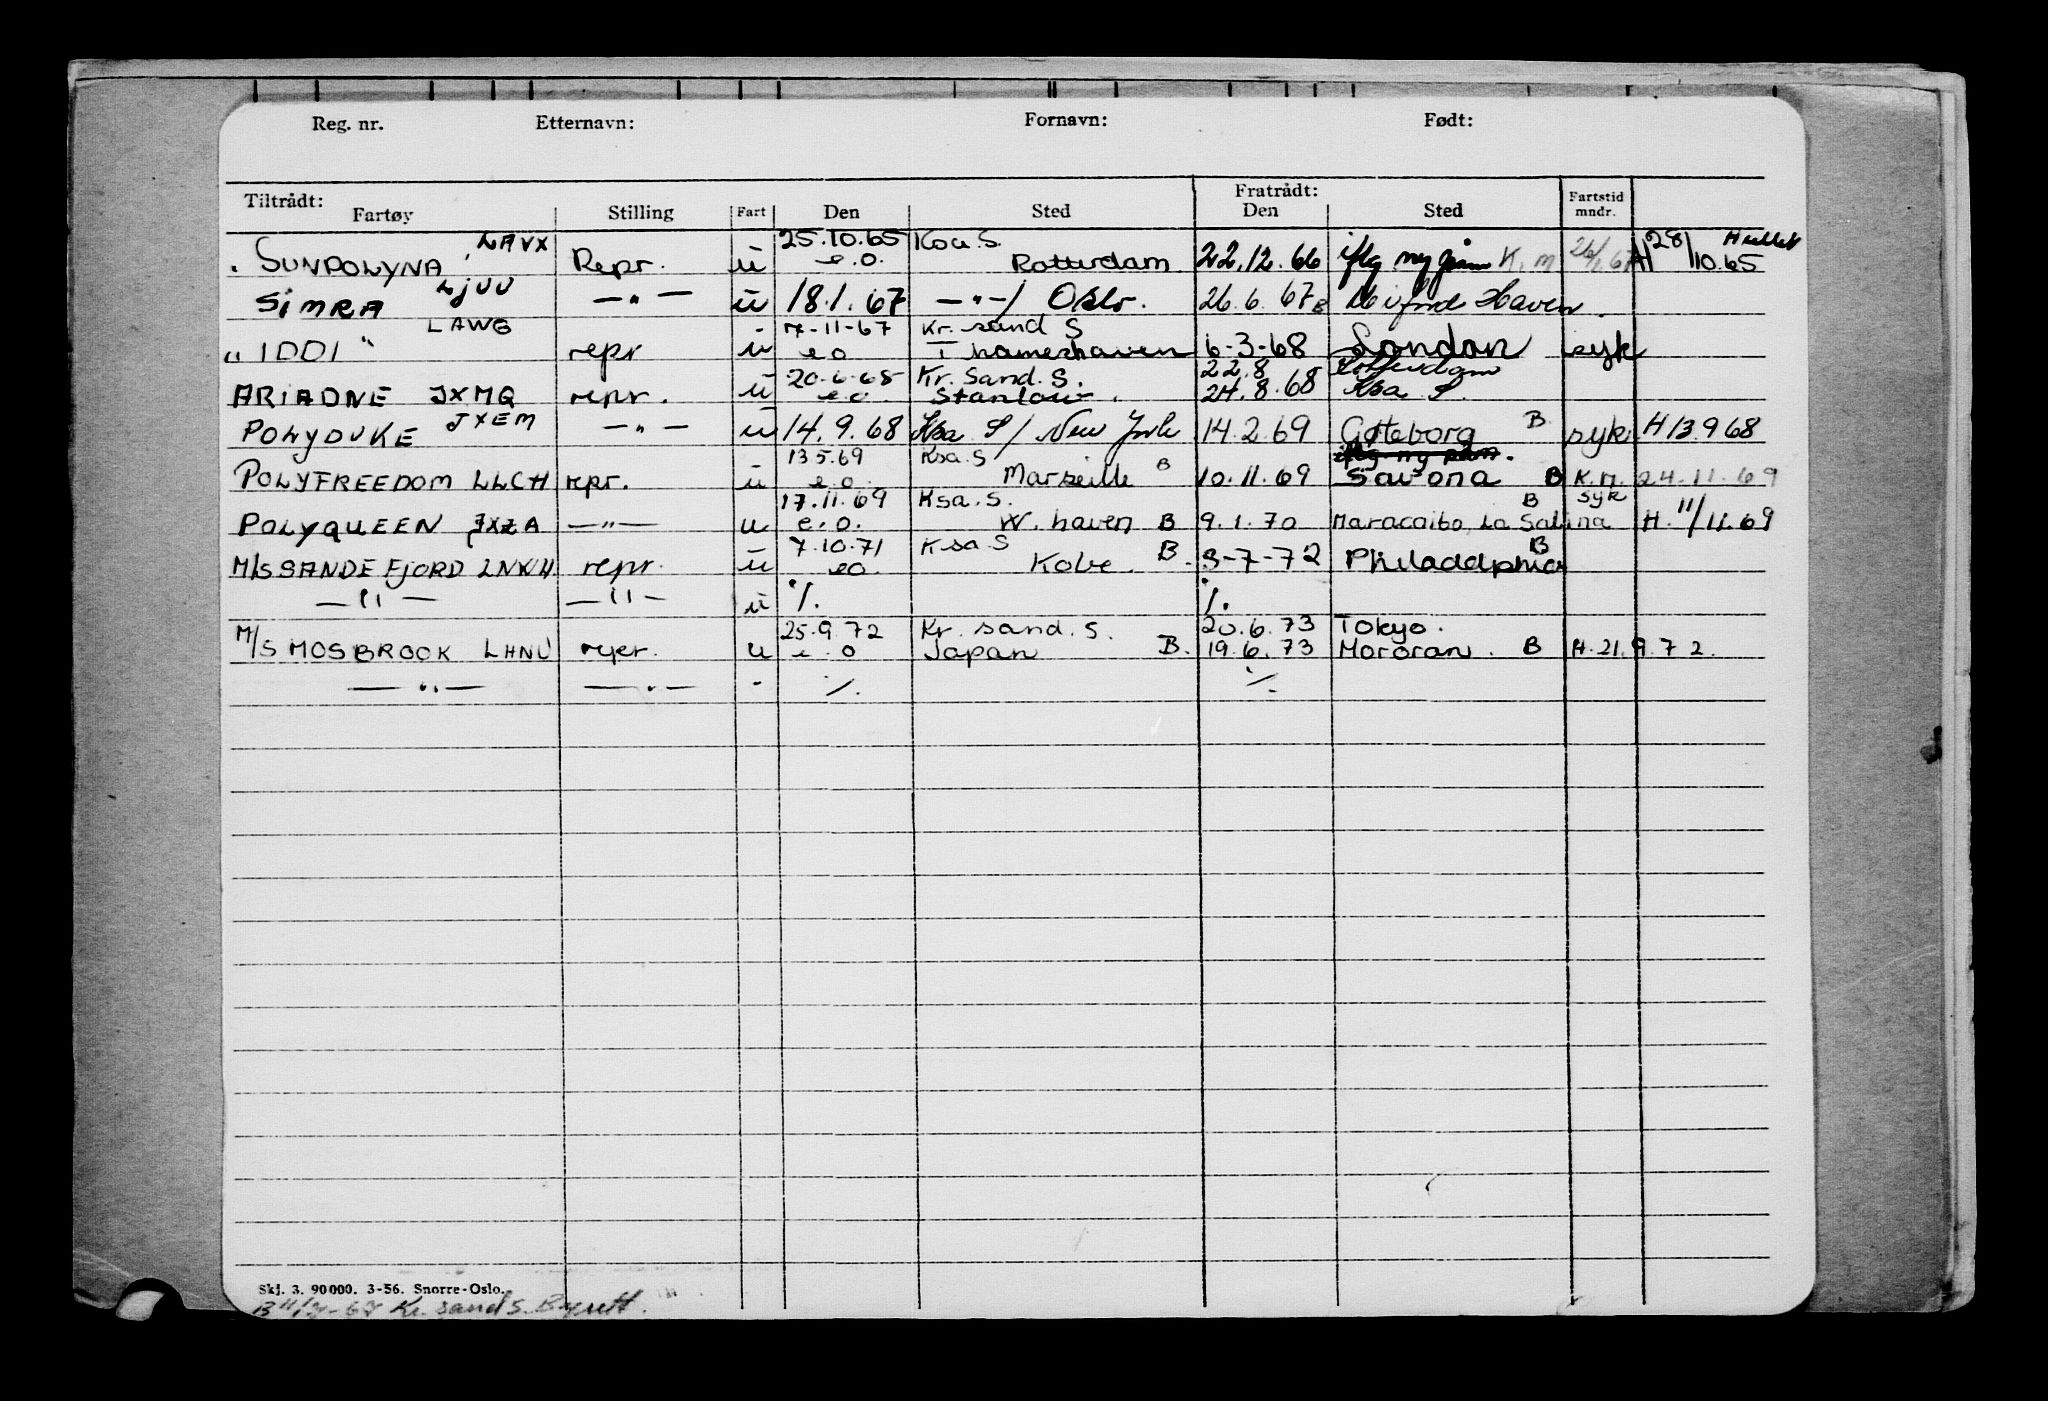 Reg. nr. Etternavn: Fornavn: Født:
Tiltrådt: Fratrådt:
Fartøy Stilling Fart Den Sted Den Sted Fartstid mndr.
LAVX 25.10.65 Ksa. S. 28/ Hullet
SUNPOLYNA Repr. u e.o. Rotterdam 22.12.66 iflg ny K.m H 10.65
LJUU
SIMRA —"— u 18.1.67 —"—/ Oslo. 26.6.67 B Milford Haven.
LAWG 7-11-67 Kr. sand S
"IDDI" repr u eo Thameshaven 6-3-68 London syk
20.6.68 Kr. Sand. S. 22.8 Rotterdam
ARIADNE JXMQ repr. u e.o. Stanlow. 24.8.68 Ksa S.
JXEM
POLYDUKE —"— u 14.9.68 Ksa S/ New York 14.2.69 Gøteborg B syk H 13.9 68
13 5.69 Ksa. S iflg ny
POLYFREEDOM LLCH repr. u e.o. Marseille B 10.11.69 Savona B K.M. 24.11.69
17.11.69 Ksa. S. B syk
POLYQUEEN JXZA —"— u e.o. W. haven B 9.1.70 Maracaibo, La Salina H. 11/11.69
7.10.71 Ksa S B
M/S SANDEFJORD LNKH repr. u eo. Kobe. B. 3-7-72 Philadelphia
—"— —"— u ·/. ·/.
25.9.72 Kr. sand. S. 20.6.73 Tokyo.
M/S MOSBROOK LHNU repr. u e.o Japan B. 19.6.73 Mororan. B H.21.9.72.
—"— —"— - ·/. ·/.
Skj. 3. 90000. 3-56. Snorre-Oslo.
Kr. sand S. Byrett.